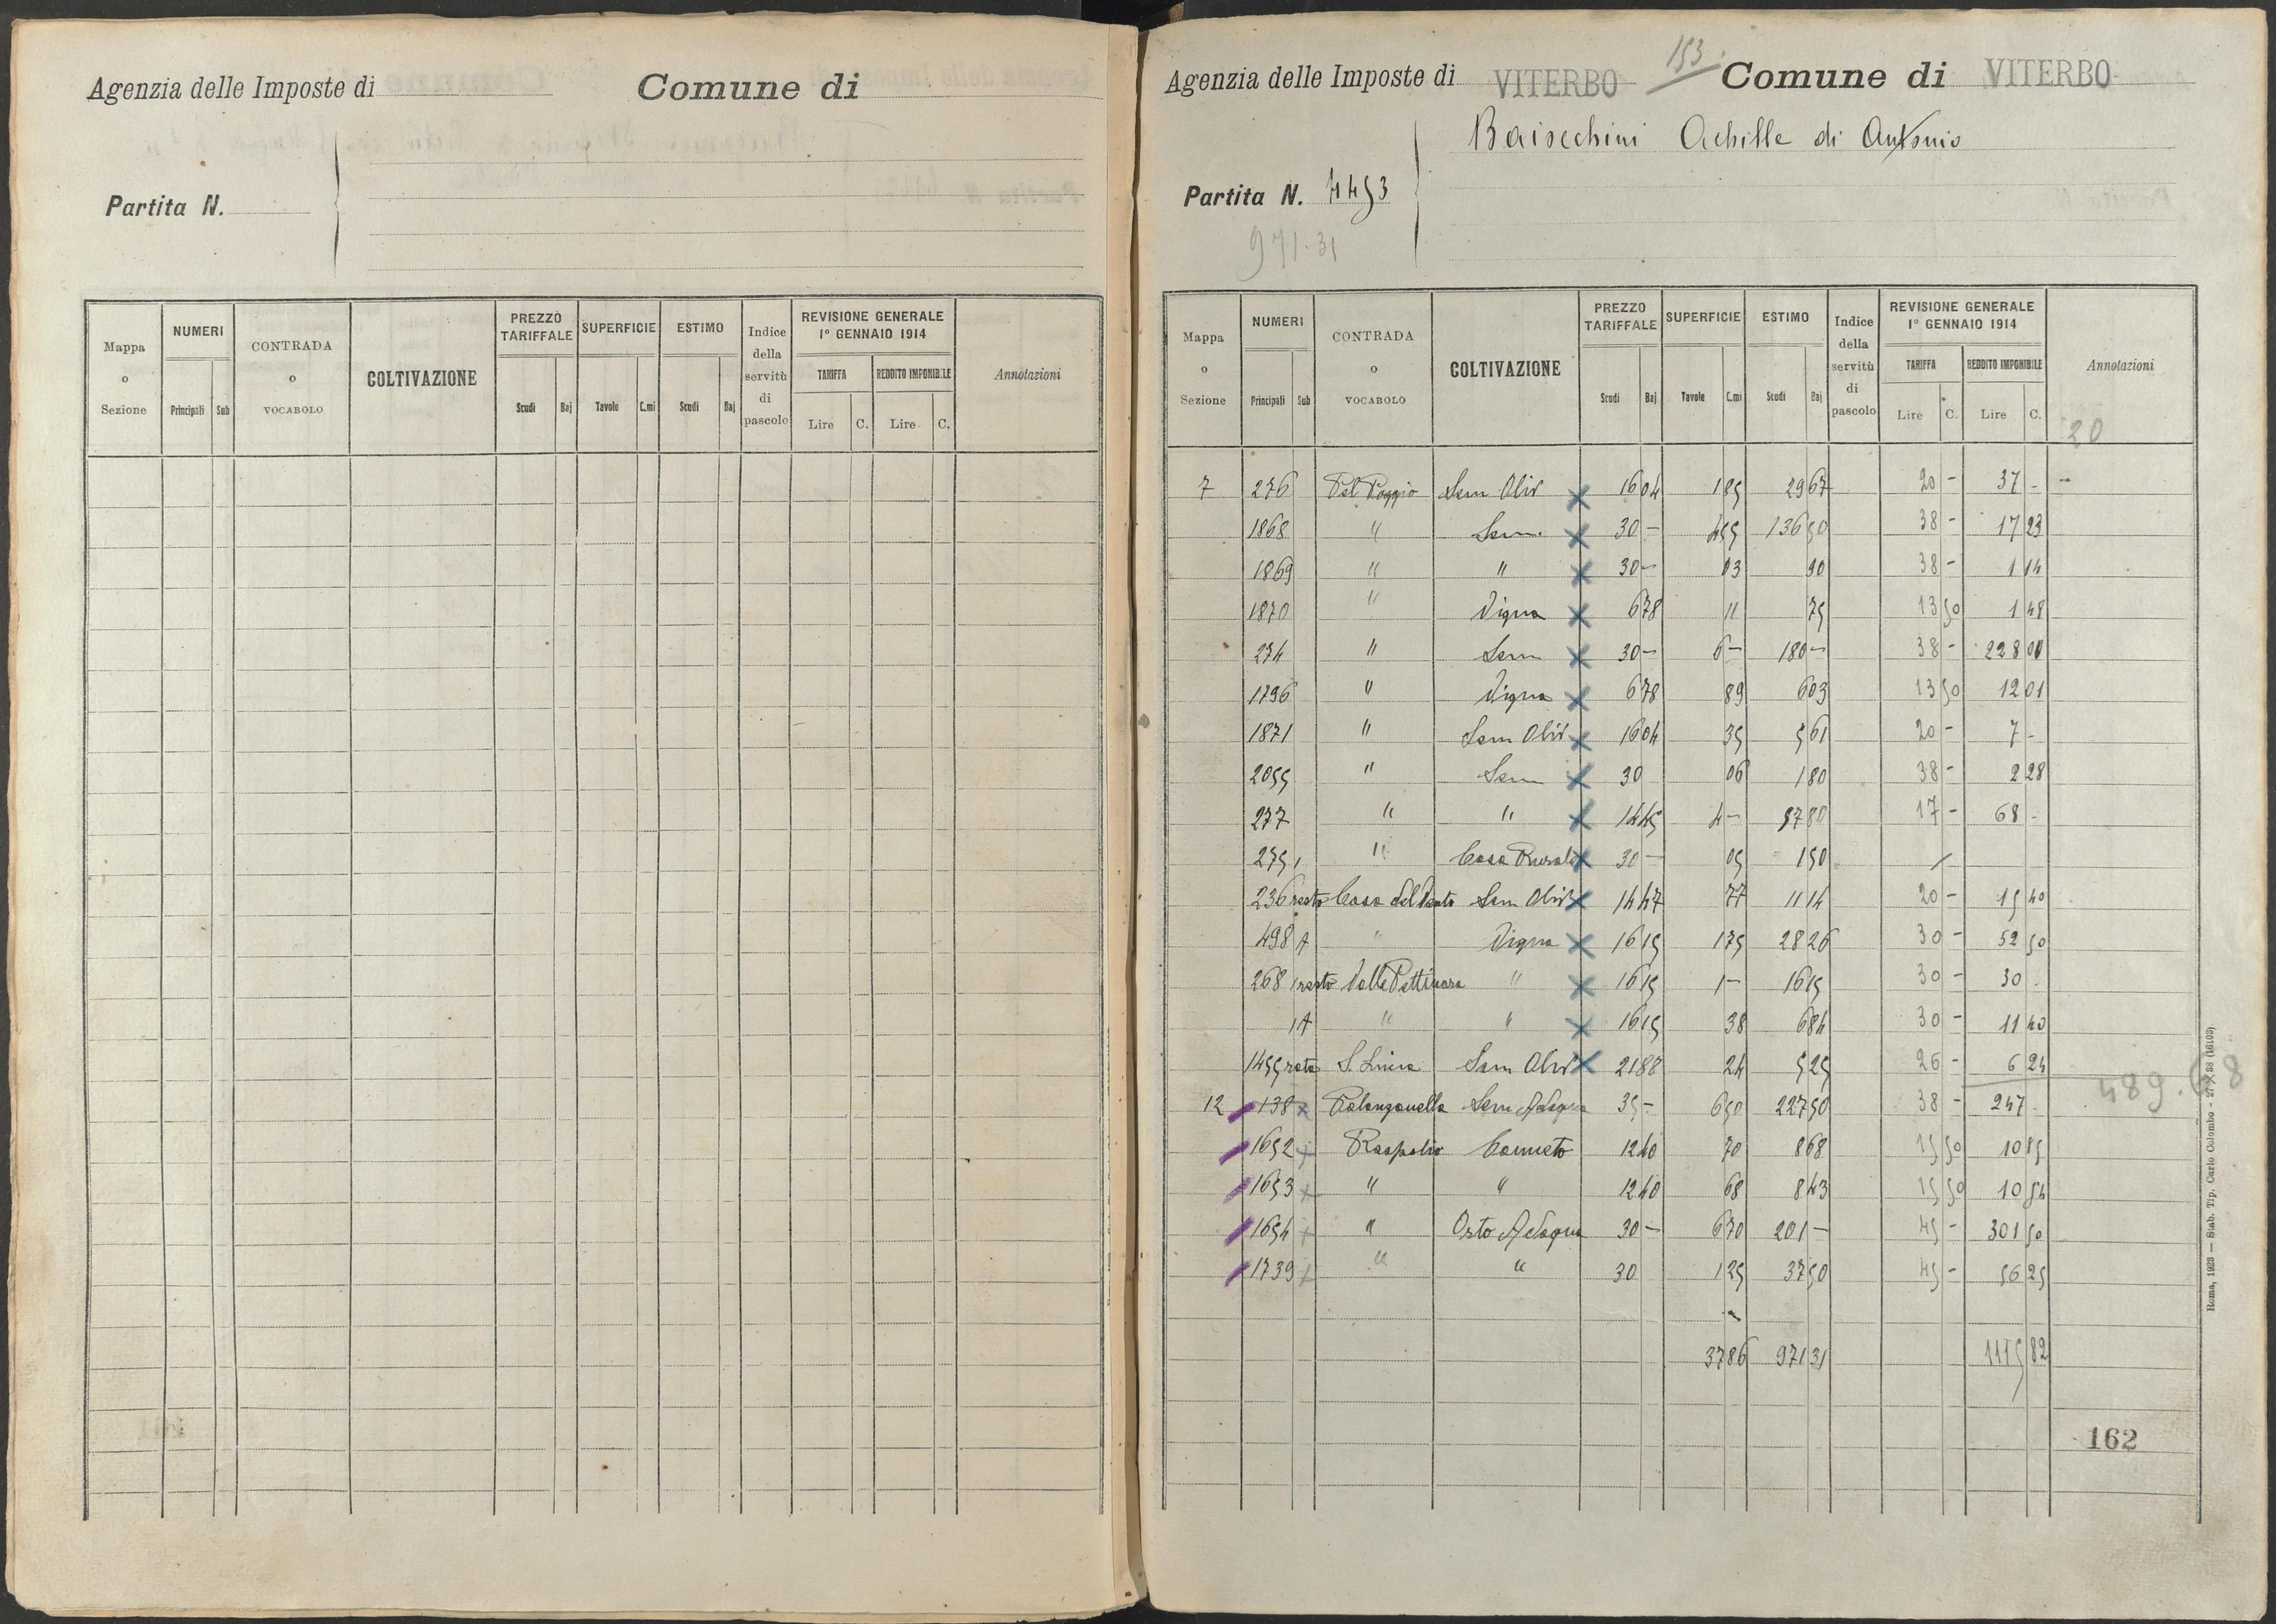 Agenzia delle Imposte di Comune di
Partita N.
Mappa o Sezione NUMERI Principali Sub CONTRADA o VOCABOLO COLTIVAZIONE PREZZO TARIFFALE Scudi Baj SUPERFICIE Tavole C.mi ESTIMO Scudi Baj Indice della servitù di pascolo REVISIONE GENERALE 1° GENNAIO 1914 TARIFFA Lire C. REDDITO IMPONIBILE Lire C. Annotazioni
153.
Agenzia delle Imposte di VITERBO Comune di VITERBO
Baiocchini Achille di Antonio
Partita N. 4453
971.31
Mappa o Sezione NUMERI Principali Sub CONTRADA o VOCABOLO COLTIVAZIONE PREZZO TARIFFALE Scudi Baj SUPERFICIE Tavole C.mi ESTIMO Scudi Baj Indice della servitù di pascolo REVISIONE GENERALE 1° GENNAIO 1914 TARIFFA Lire C. REDDITO IMPONIBILE Lire C. Annotazioni
20
7 276 Pel Poggio Sem Oliv x 16 04 1 85 29 67 20 - 37 -
1868 " Sem. x 30 - 4 55 136 50 38 - 17 23
1869 " " x 30 - 03 90 38 - 1 14
1870 " Vigna x 6 78 11 75 13 50 1 48
274 " Sem x 30 - 6 - 180 - 38 - 228 00
1796 " Vigna x 6 78 89 6 03 13 50 12 01
1871 " Sem Oliv x 16 04 35 5 61 20 - 7 -
2055 " Sem x 30 06 1 80 38 - 2 28
277 " " x 14 45 4 - 57 80 17 - 68 -
275 1 " Casa Rurale x 30 - 05 1 50 /
236 resto Casa del Santo Sem Oliv x 14 47 77 11 14 20 - 15 40
498 A " Vigna x 16 15 1 75 28 26 30 - 52 50
268 1 resto Valle Pettinara " x 16 15 1 - 16 15 30 - 30 -
1A " " x 16 15 38 6 84 30 - 11 40
1455 rata S. Lucia Sem Oliv x 21 88 24 5 25 26 - 6 24
489.68
12 138 x Palanzanella Sem Adaqua 35 - 6 50 227 50 38 - 247
1652 x Raspolio Canneto 12 40 70 8 68 15 50 10 85
1653 x " " 12 40 68 8 43 15 50 10 54
1654 x " Orto Adaqua 30 - 6 70 201 - 45 - 301 50
1739 x " " 30 1 25 37 50 45 - 56 25
37 86 971 31 1115 82
162
Roma, 1923 — Stab. Tip. Carlo Colombo - 27 X 38 (1610).